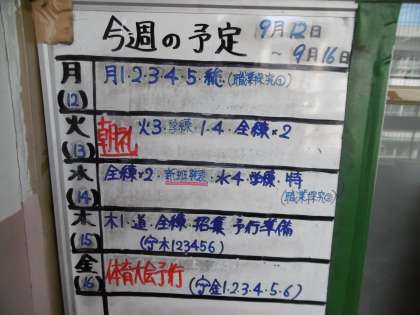 今週の予定
9月12日
～9月16日
月 月1・2・3・4・5・総(職業探究①)
(12)
火 朝礼 火3・学練・1・4・全練×2
(13)
水 全練×2・新班発表・水4・学練・特
(14) (職業探究②)
木 木1・道・全練・招集・予行準備
(15) (守木123456)
金 体育大会予行(守金1・2・3・4・5・6)
(16)